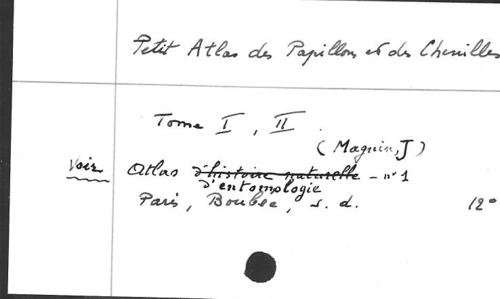 Petit Atlas des Papillons et des Chenilles
Tome I, II
(Magnin, J)
Voir Atlas d'histoire naturelle - n° 1
d'entomologie
Paris, Boubée, s. d. 12°